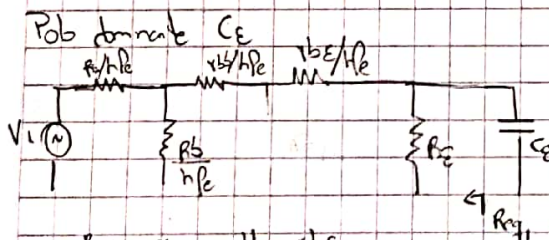 Pob dominate CE
Rs/hfe rbb'/hfe rbE/hfe
Vi
Rb
hfe
RE
CE
Req1